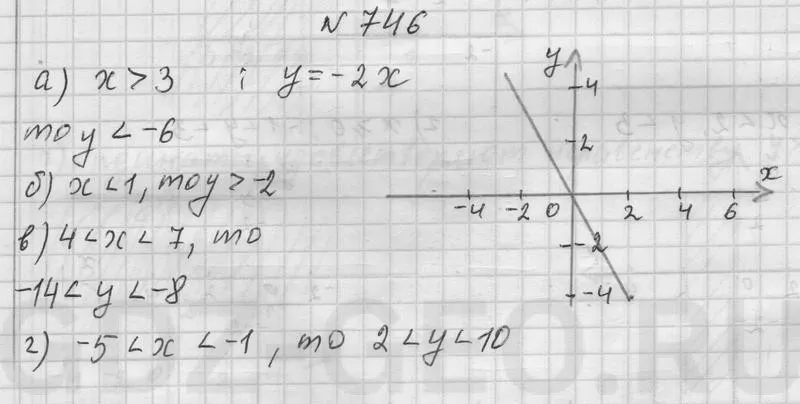 N 746
а) x > 3 ; y = -2x
то y < -6
б) x < 1, то y > -2
в) 4 < x < 7, то
-14 < y < -8
г) -5 < x < -1, то 2 < y < 10
y
4
2
x
-4 -2 0 2 4 6
-2
-4
GDZ-GEO.RU